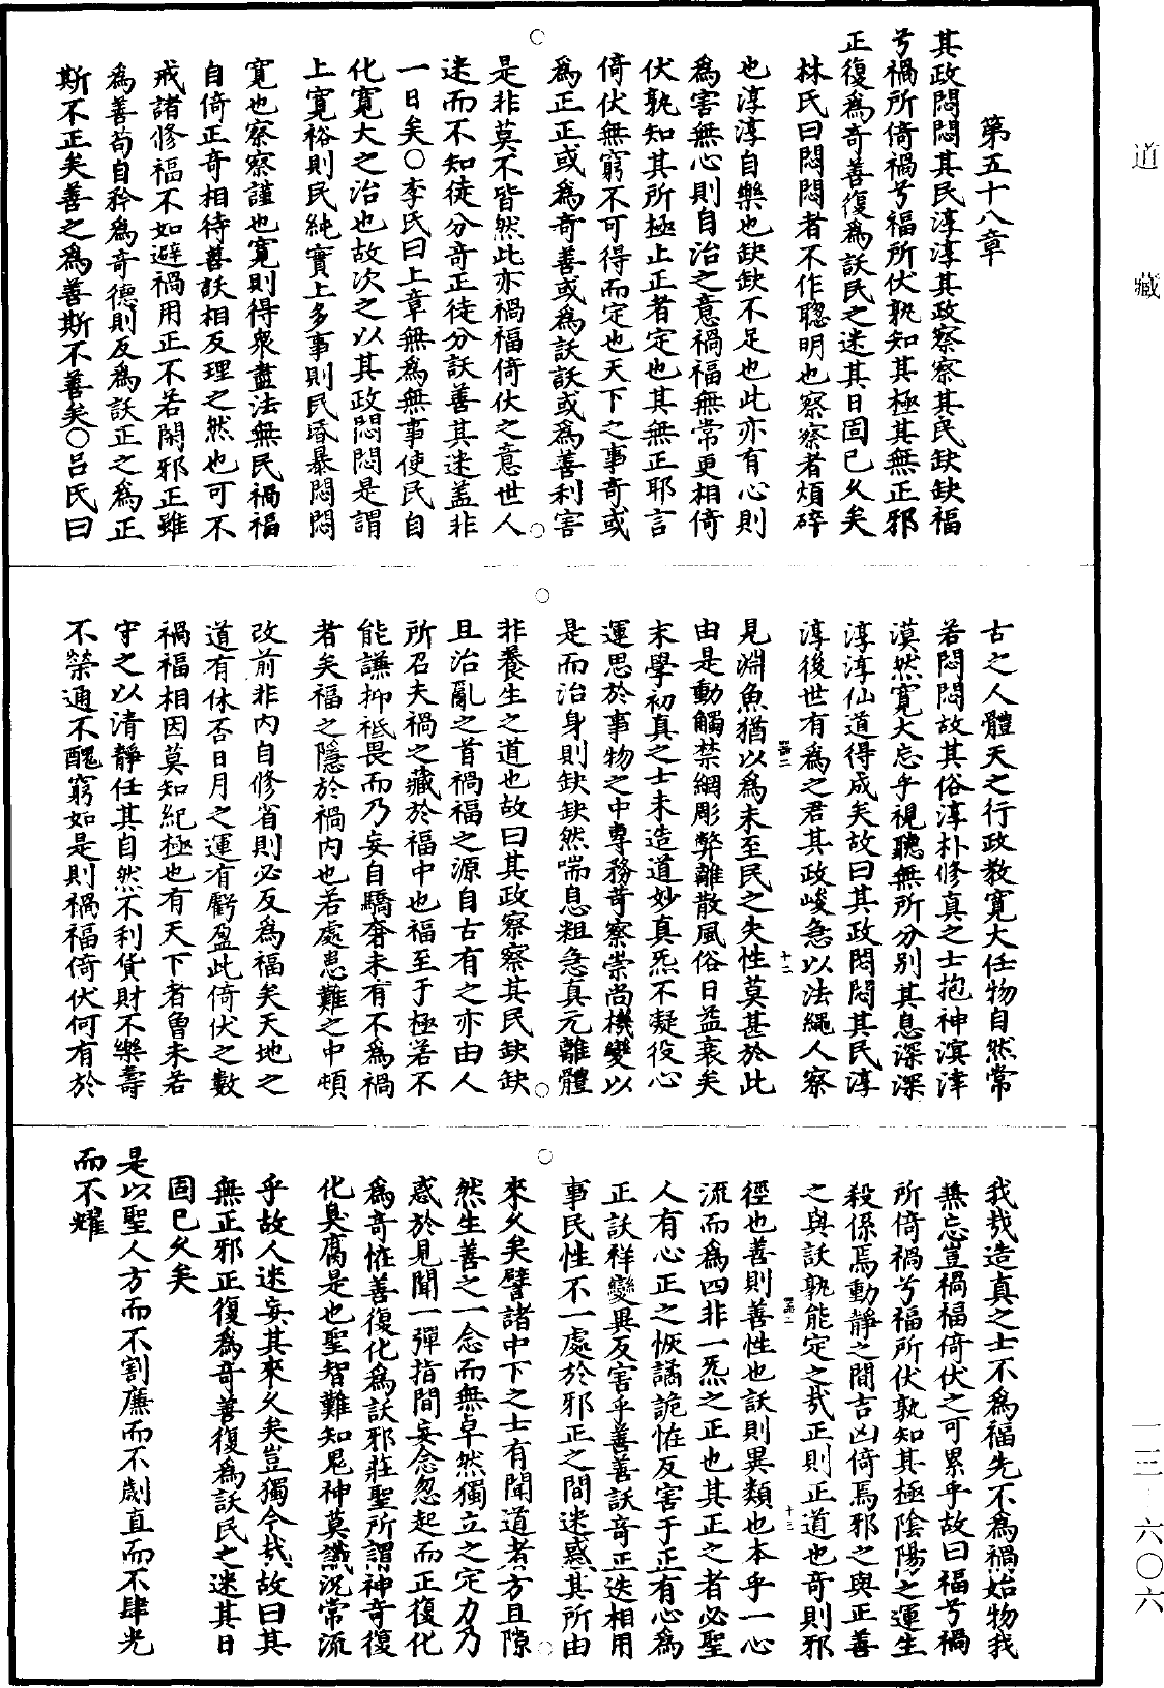 道藏
第五十八章
其政悶悶其民淳淳其政察察其民缺缺福
兮禍所倚禍兮福所伏孰知其極其無正邪
正復為奇善復為訞民之迷其日固已久矣
林氏曰悶悶者不作聰明也察察者煩碎
也淳淳自樂也缺缺不足也此亦有心則
為害無心則自治之意禍福無常更相倚
伏孰知其所極止正者定也其無正耶言
倚伏無窮不可得而定也天下之事奇或
為正正或為奇善或為訞訞或為善利害
是非莫不皆然此亦禍福倚伏之意世人
迷而不知徒分奇正徒分訞善其迷蓋非
一日矣○李氏曰上章無為無事使民自
化寬大之治也故次之以其政悶悶是謂
上寬裕則民純實上多事則民昏暴悶悶
寬也察察謹也寬則得衆盡法無民禍福
自倚正奇相待善訞相反理之然也可不
戒諸修福不如避禍用正不若閑邪正雖
為善苟自矜為奇德則反為訞正之為正
斯不正矣善之為善斯不善矣○呂氏曰
古之人體天之行政教寬大任物自然常
若悶悶故其俗淳朴修真之士抱神滨涬
漠然寬大忘乎視聽無所分別其息深深
淳淳仙道得成矣故曰其政悶悶其民淳
淳後世有為之君其政峻急以法繩人察
見淵魚猶以為未至民之失性莫甚於此
由是動觸禁網彫弊離散風俗日益衰矣
末學初真之士未造道妙真炁不凝役心
運思於事物之中專務苛察崇尚機變以
是而治身則缺缺然喘息粗急真元離體
非養生之道也故曰其政察察其民缺缺
且治亂之首禍福之源自古有之亦由人
所召夫禍之藏於福中也福至于極若不
能謙抑祗畏而乃妄自驕奢未有不為禍
者矣福之隱於禍內也若處患難之中頓
改前非內自修省則必反為福矣天地之
道有休否日月之運有虧盈此倚伏之數
禍福相因莫知紀極也有天下者曾未若
守之以清靜任其自然不利貨財不樂壽
不榮通不醜窮如是則禍福倚伏何有於
我哉造真之士不為福先不為禍始物我
兼忘豈禍福倚伏之可累乎故曰福兮禍
所倚禍兮福所伏孰知其極陰陽之運生
殺係焉動靜之間吉凶倚焉邪之與正善
之與訞孰能定之哉正則正道也奇則邪
徑也善則善性也訞則異類也本乎一心
流而為四非一炁之正也其正之者必聖
人有心正之恢譎詭恠反害于正有心為
正訞祥變異反害乎善善訞奇正迭相用
事民性不一處於邪正之間迷惑其所由
來久矣譬諸中下之士有聞道者方且隙
然生善之一念而無卓然獨立之定力乃
惑於見聞一彈指間妄念忽起而正復化
為奇恠善復化為訞邪莊聖所謂神奇復
化臭腐是也聖智難知鬼神莫識況常流
乎故人迷妄其來久矣豈獨今哉故曰其
無正邪正復為奇善復為訞民之迷其日
固已久矣
是以聖人方而不割廉而不劌直而不肆光
而不耀
一三·六〇六